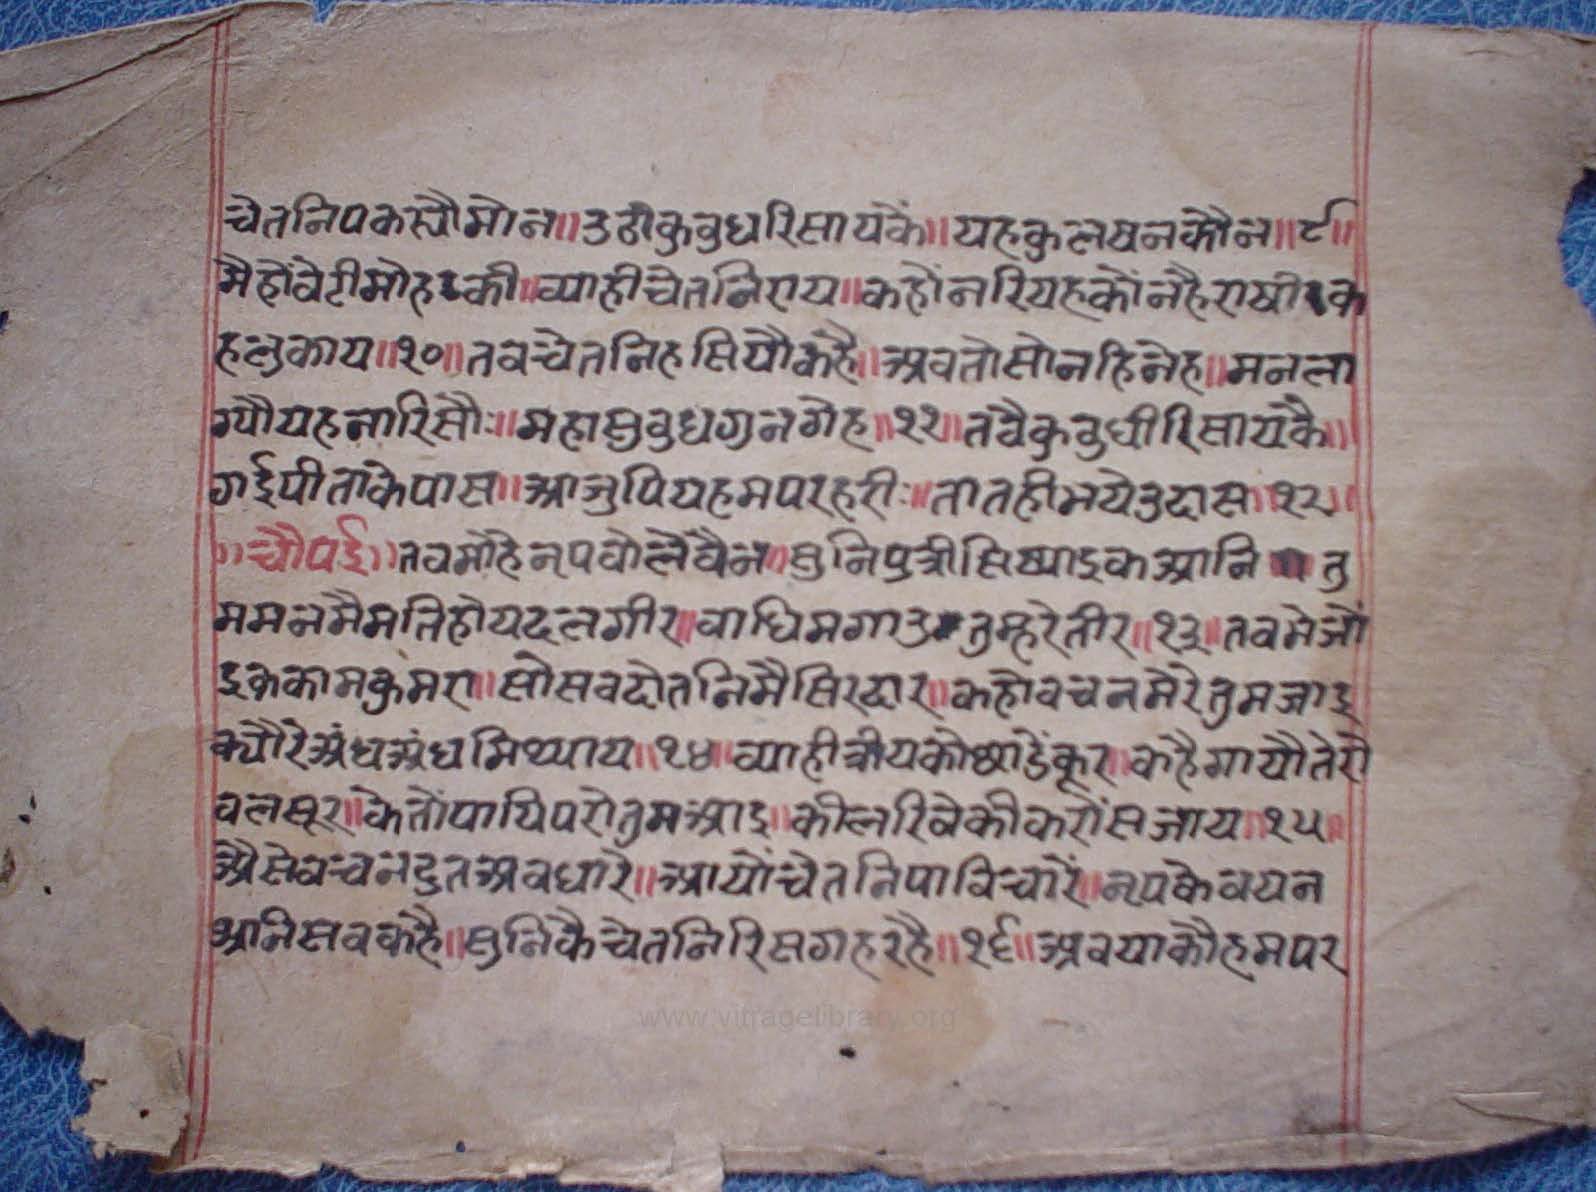 चेतनिपकस्यौमोन॥उठीकुवुधरिसायकें॥यहकुलषनकौन॥९॥
मैहोंवेटीमोहकी॥व्याहीचेतनिराय॥कहोंनरियहकोंनहैराषीक
हलुकाय॥१०॥तवचेतनिहसियौकहै॥अवतोसोनहिनेह॥मनला
ग्यौयहनारिसौः॥महासुवुधगुनगेह॥११॥तवैकुवुधीरिसायकै॥
गईपीताकेपास॥आजुपियहमपरहरीः॥तातहीमयेउदास॥१२॥
॥चौपई॥तवमोहैनृपवोलैवैन॥सुनिपुत्रीसिष्याइकआनि तु
ममनमैमतिहोयदलगीर॥वाधिमगाउतुम्हरेतीर॥१३॥तवमेजों
इककामकुमरा॥सोसवदोतनिमैसिरदार॥कहोवचनमेरेतुमजाइ
क्यौरेअंधअंधमिथ्याय॥१४॥व्याहीत्रीयकोछाडेंकूर॥कहैगायौतेरो
वलसूर॥केतोंपायिपरोतुमआइ॥कीलरिवेकीकरोंसजाय॥१५॥
औसेवचनदुतअवधारै॥आयोंचेतनिपाविचारें॥नृपकेवयन
आनिसवकहै॥सुनिकैचेतनिरिसगहरहै॥१६॥अवयाकौहमपर
www.vitragelibrary.org